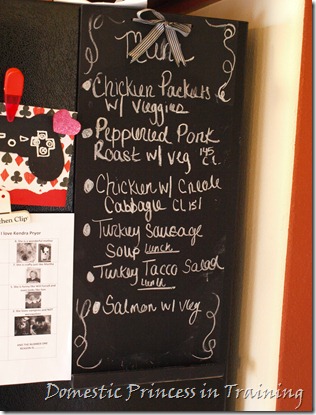 Menu
Chicken Packets
w/ Veggies
Peppered Pork
Roast w/ veg 145
CL
Chicken w/ Creole
Cabbage CL 151
Turkey Sausage
Soup lunch
Turkey Tacco Salad
lunch
Salmon w/ Veg
chen Clip
I love Kendra Pryor
Domestic Princess in Training